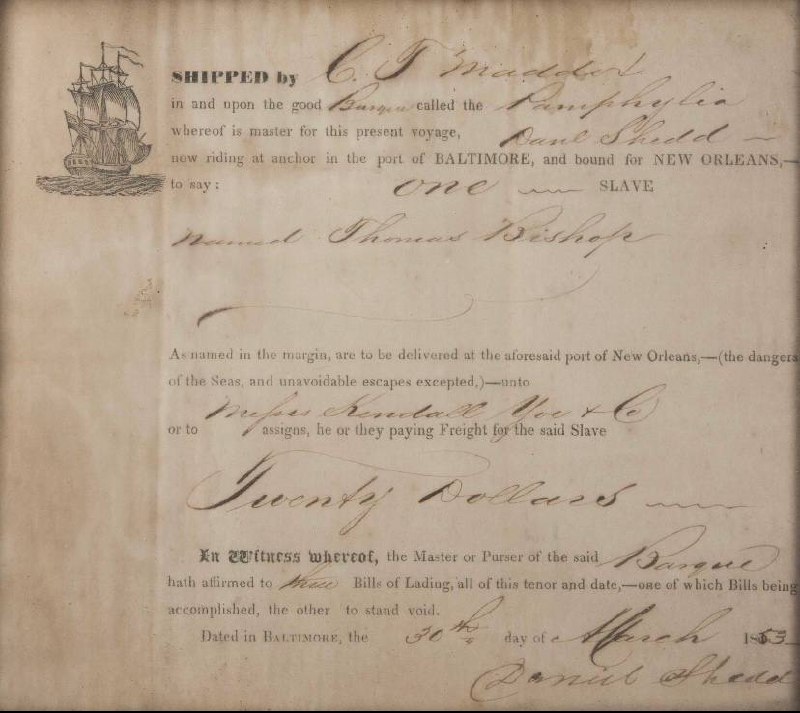 SHIPPED by C. F Maddox
in and upon the good Barque called the Pamphylia
whereof is master for this present voyage, Danl Shedd
now riding at anchor in the port of BALTIMORE, and bound for NEW ORLEANS,—
to say: one SLAVE
named Thomas Bishop
As named in the margin, are to be delivered at the aforesaid port of New Orleans,—(the dangers
of the Seas, and unavoidable escapes excepted,)—unto
Messrs Kendall Yoe & Co
or to assigns, he or they paying Freight for the said Slave
Twenty Dollars
In Witness whereof, the Master or Purser of the said Barque
hath affirmed to three Bills of Lading, all of this tenor and date,—one of which Bills being
accomplished, the other to stand void.
Dated in BALTIMORE, the 30th day of March 1853
Daniel Shedd